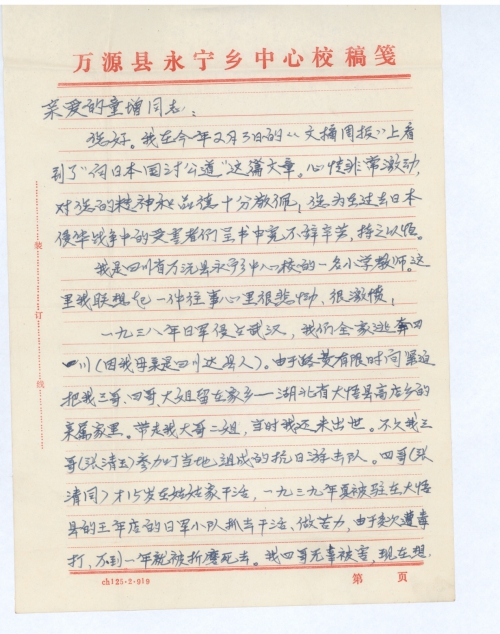 万源县永宁乡中心校稿笺
亲爱的童增同志：
您好。我在今年2月3日的“文摘周报”上看
到了“向日本国讨公道”这篇文章。心情非常激动，
对您的精神和品德十分敬佩，您为在过去日本
侵华战争中的受害者们呈书申冤不辞辛劳，持之以恒。
我是四川省万源县永宁乡中心校的一名小学教师。这
里我联想起一件往事心里很悲恸、很激愤，
一九三八年日军侵占武汉，我们全家逃奔四
川（因我母亲是四川达县人）。由于路费有限时间紧迫
把我三哥、四哥、大姐留在家乡—湖北省大悟县高店乡的
亲属家里。带走我大哥二姐，当时我还未出世。不久我三
哥（张清玉）参加了当地组成的抗日游击队。四哥（张
清同）才15岁在姑姑家干活，一九三九年夏被驻在大悟
县的王年店的日军小队抓去干活、做苦力，由于多次遭毒
打，不到一年就被折磨死去。我四哥无辜被害，现在想
装
订
线
ch125-2-919
第 页